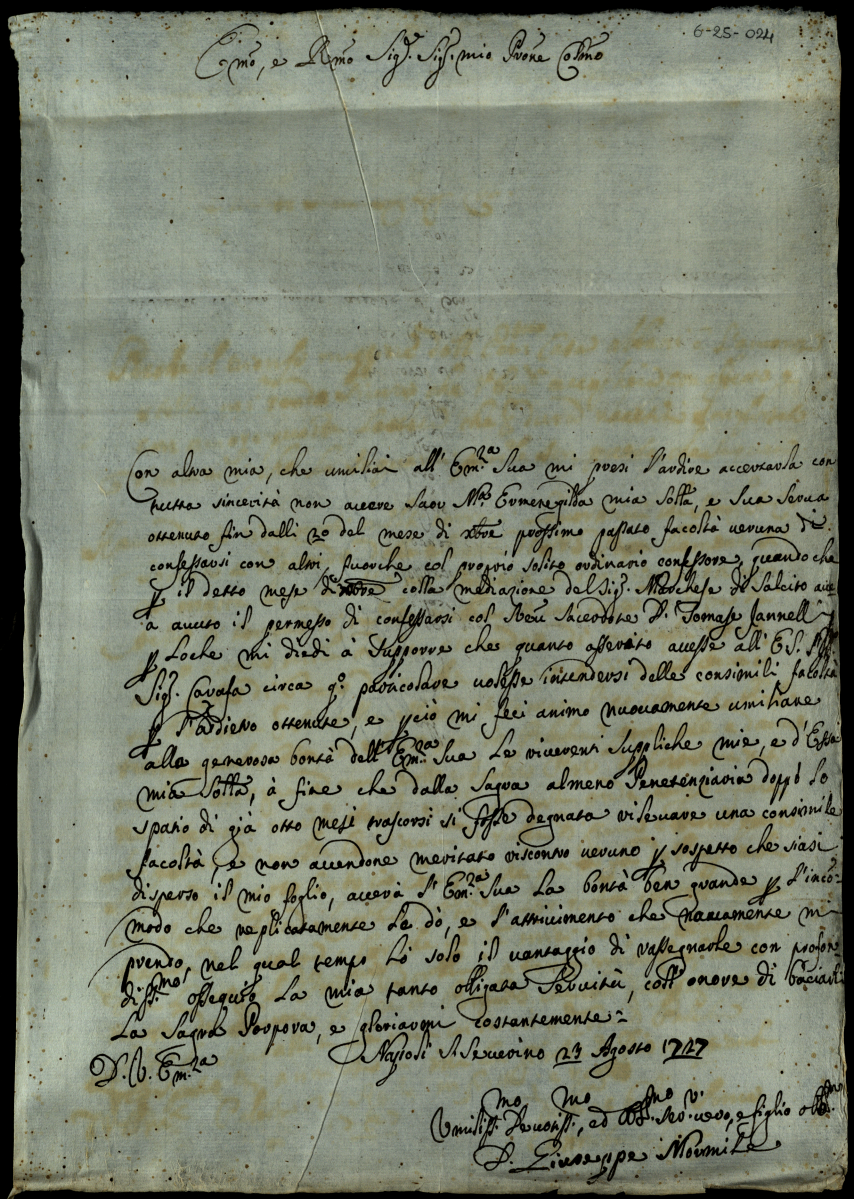 6-25-024
Emo, e Rmo Sigr. Sigr. mio Prone Colmo
Con altra mia, che umiliai all' Em.za Sua mi presi l'ardire accertarla con
tutta sincerità non avere Saor Mra Ermenegilda mia Sorlla, e Sua Serva
ottenuto fin dalli 20 del mese di xbre prossimo passato facoltà veruna di
confessarsi con altri, fuorche col proprio solito ordinario confessore, quando che
p il detto mese di xbre colla mediazione del Sigr. Marchese di Salcito
à avuto il permesso di confessarsi col Sacerdote D. Tomase Jannelli
p Loche mi diedi à Supporre che quanto asserito avesse all' E. S.
Sigr. Carafa circa qo. particolare volesse intendersi delle consimili facoltà
p l'addietro ottenute, e pciò mi feci animo nuovamente umiliare
alla generosa bontà dell' Em.za Sua le riverenti Suppliche mie, e d'Essa
mia Sorlla, à fine che dalla Sagra almeno Penetenziaria doppo lo
spatio di già otto mesi trascorsi si fosse degnata rilevare una consimile
facoltà, e non avendone meritato riscontro veruno p sospetto che siasi
disperso il mio foglio, averà l' Em.za Sua la bontà ben grande p l'inco-
modo che replicatamente Le dò, e l'attrivimento che mi
prendo, nel qual tempo hò solo il vantaggio di rassegnarle con profon-
diss.mo ossequio la mia tanto obligata Servitù, coll' onore di baciarli
La Sagra Porpora, e gloriarmi costantemente
D. V. Em.za
Napoli S. Severino 23 Agosto 1727
Umiliss.mo Devotiss.mo, ed Obl.mo Ser. vero, e figlio
D. Giuseppe Mormile